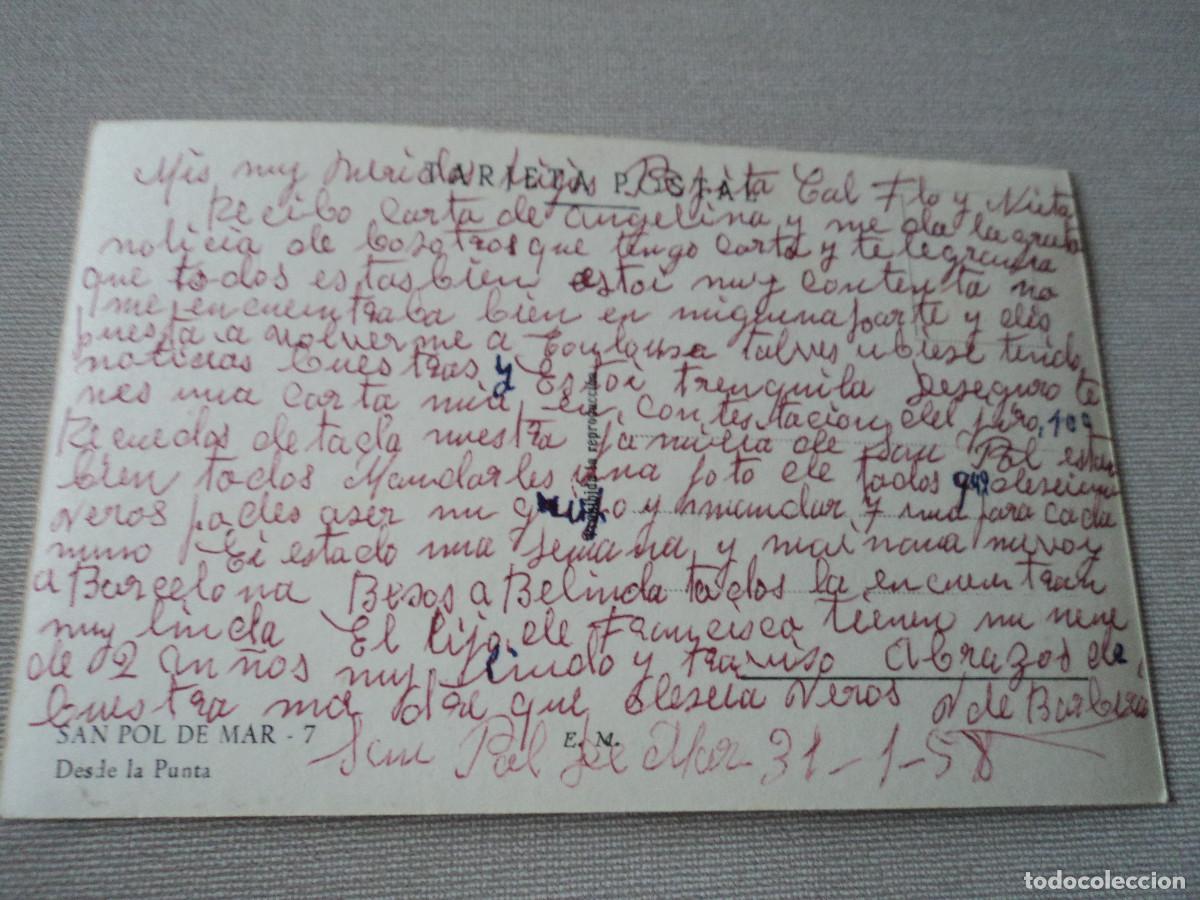 TARJETA POSTAL
Mis muy queridos hijos Pepita y Nieta
Recibo Carta de angelina y me da la grata
noticia de bosotros que tengo carta y telegrama
que todos estas bien estoi muy contenta no
me encuentraba bien en minguna parte y
puesta a volverme a ubiese tenido
noticias buestras y Estoi trenquila
nes una carta mia, en, contestacion del
Recuedos de tada nuestra de San Pol estan
bien todos Mandarles una foto de todos que
veros podes aser un y mandar y una para cada
uno Ei estado una semana, y mai nana nuvoy
a Barcelona Besos a Belinda todos la encuentran
muy linda El hijo de Francisca tienen un nene
de 2 an ños muy lindo y traviso abrazos de
buestra ma dre que deseia veros N de Barbera
San Pol de Mar 31-1-58
SAN POL DE MAR - 7
Desde la Punta
E. M.
Prohibida la reproducción
todocoleccion